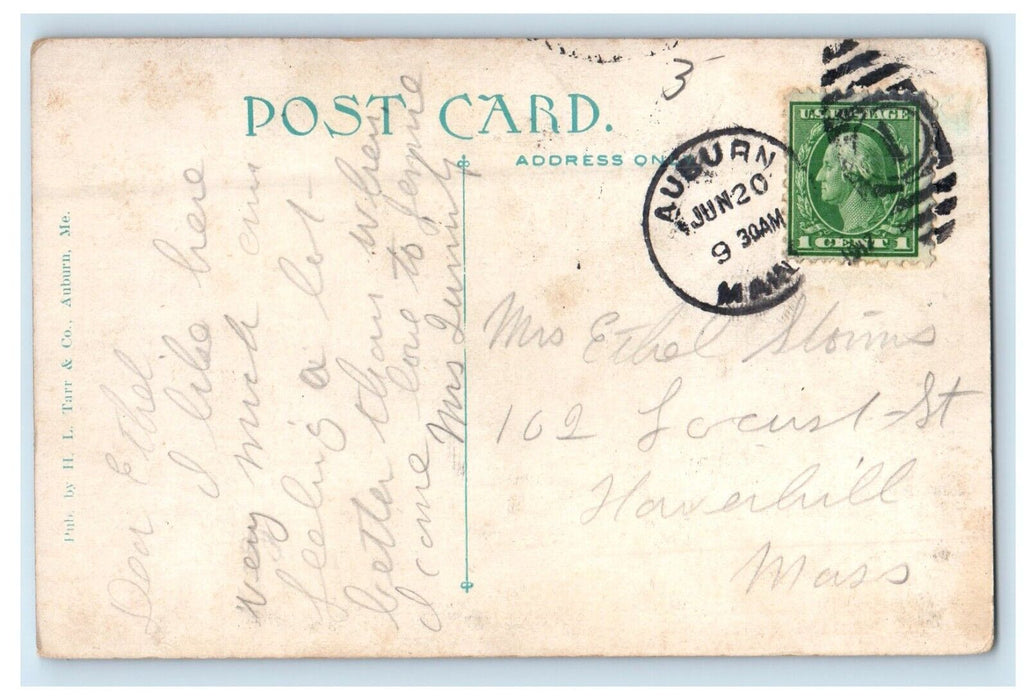 POST CARD.
ADDRESS ON
3
AUBURN
JUN 20
9 30AM
MAINE
U.S. POSTAGE
1 CENT 1
Pub. by H. L. Tarr & Co., Auburn, Me.
Dear Ethel
I like here
very much am
feeling a lot
better than when
I come love to
Mrs
Mrs Ethel
102 Locust St
Haverhill
Mass